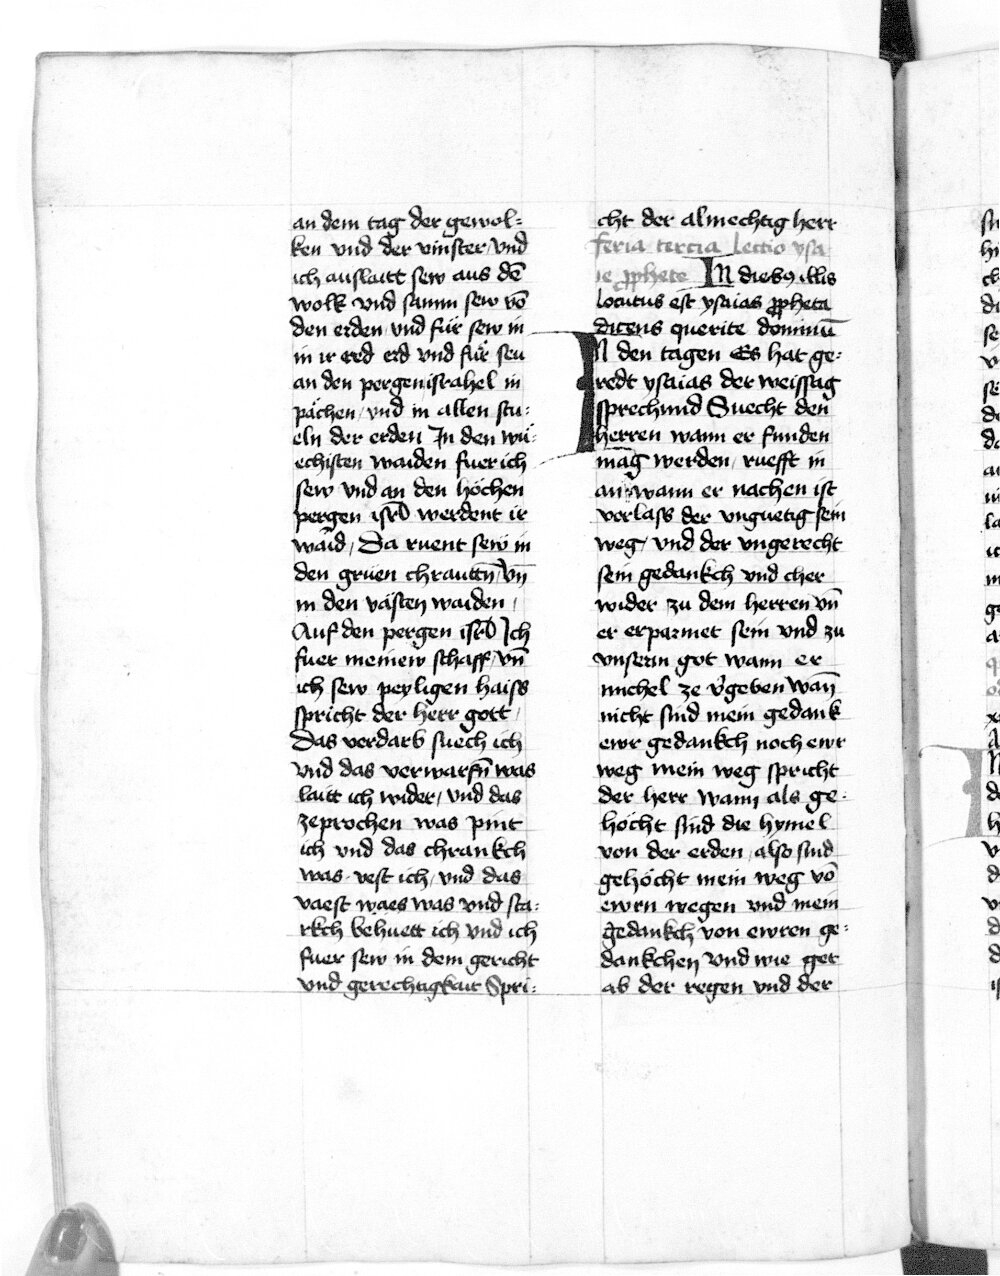 an dem tag der gewol-
ken vnd der vinster vnd
ich auslaitt sew aus dē
wolk vnd samm sew vō
den erden vnd für sew in
in ir erd erd vnd für seu
an den pergen israhel in
pächen vnd in allen stu-
eln der erden In den wu-
echisten waiden fuer ich
sew vnd an den höchen
pergen isrl werdent ir
waid / Da ruent sew in
den grüen chrauttn̄ vn̄
in den västen waiden /
Auf den pergen isrl Ich
fuer meinew schaff / vn̄
ich sew peyligen haiss
spricht der herr gott /
Das verdarb suech ich
vnd das verwarfn̄ was
laitt ich wider / vnd das
zeprochen was pint
ich vnd das chrankch
was vest ich / vnd das
vaest waes was vnd sta-
rkch behuett ich vnd ich
fuer sew in dem gericht
vnd gerechtigkait Spri-
cht der almechtig herr
feria tercia lectio ysa
ie ꝓphete IN diebꝰ illis
locutus est ysaias ꝓpheta
dicens querite dominū
IN den tagen Es hat ge-
redt ysaias der weissag
sprechund Suecht den
herren wann er funden
mag werden / ruefft in
an wann er nachen ist
verlass der vnguetig sein
weg / vnd der vngerecht
sein gedankch vnd cher
wider zu dem herren vn̄
er erparmet sein vnd zu
vnserm got wann er
michel ze v̓geben wan̄
nicht sind mein gedank
ewr gedankch noch ewr
weg mein weg spricht
der herr wann als ge-
höcht sind die hymel
von der erden / also sind
gehöcht mein weg vō
ewrn wegen vnd mein
gedankch von ewren ge-
dankchen Vnd wie get
ab der regen vnd der